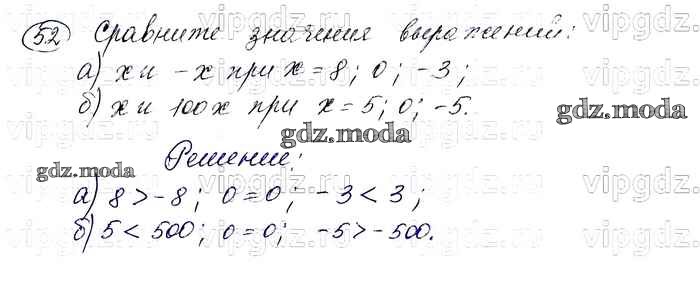 52 Сравните значения выражений:
а) x и -x при x = 8; 0; -3;
б) x и 100x при x = 5; 0; -5.
gdz.moda
gdz.moda
Решение:
gdz.moda
а) 8 > -8; 0 = 0; -3 < 3;
б) 5 < 500; 0 = 0; -5 > -500.